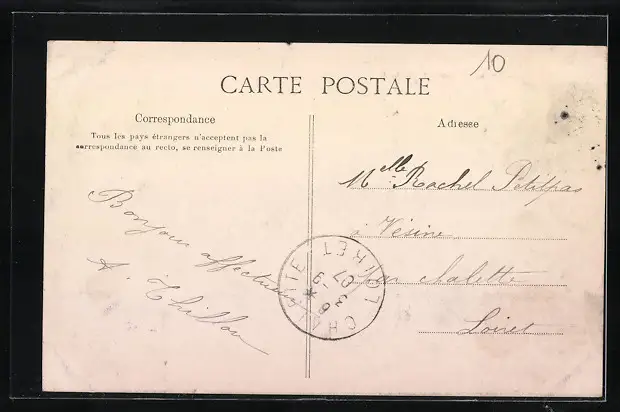 10
CARTE POSTALE
Correspondance
Tous les pays étrangers n'acceptent pas la
correspondance au recto, se renseigner à la Poste
Adresse
Melle Rachel Petitpas
à Vésine
par Chalette
Loiret
Bonjour affectueux
A. Thillou
CHALETTE LOIRET
3 - 9
07